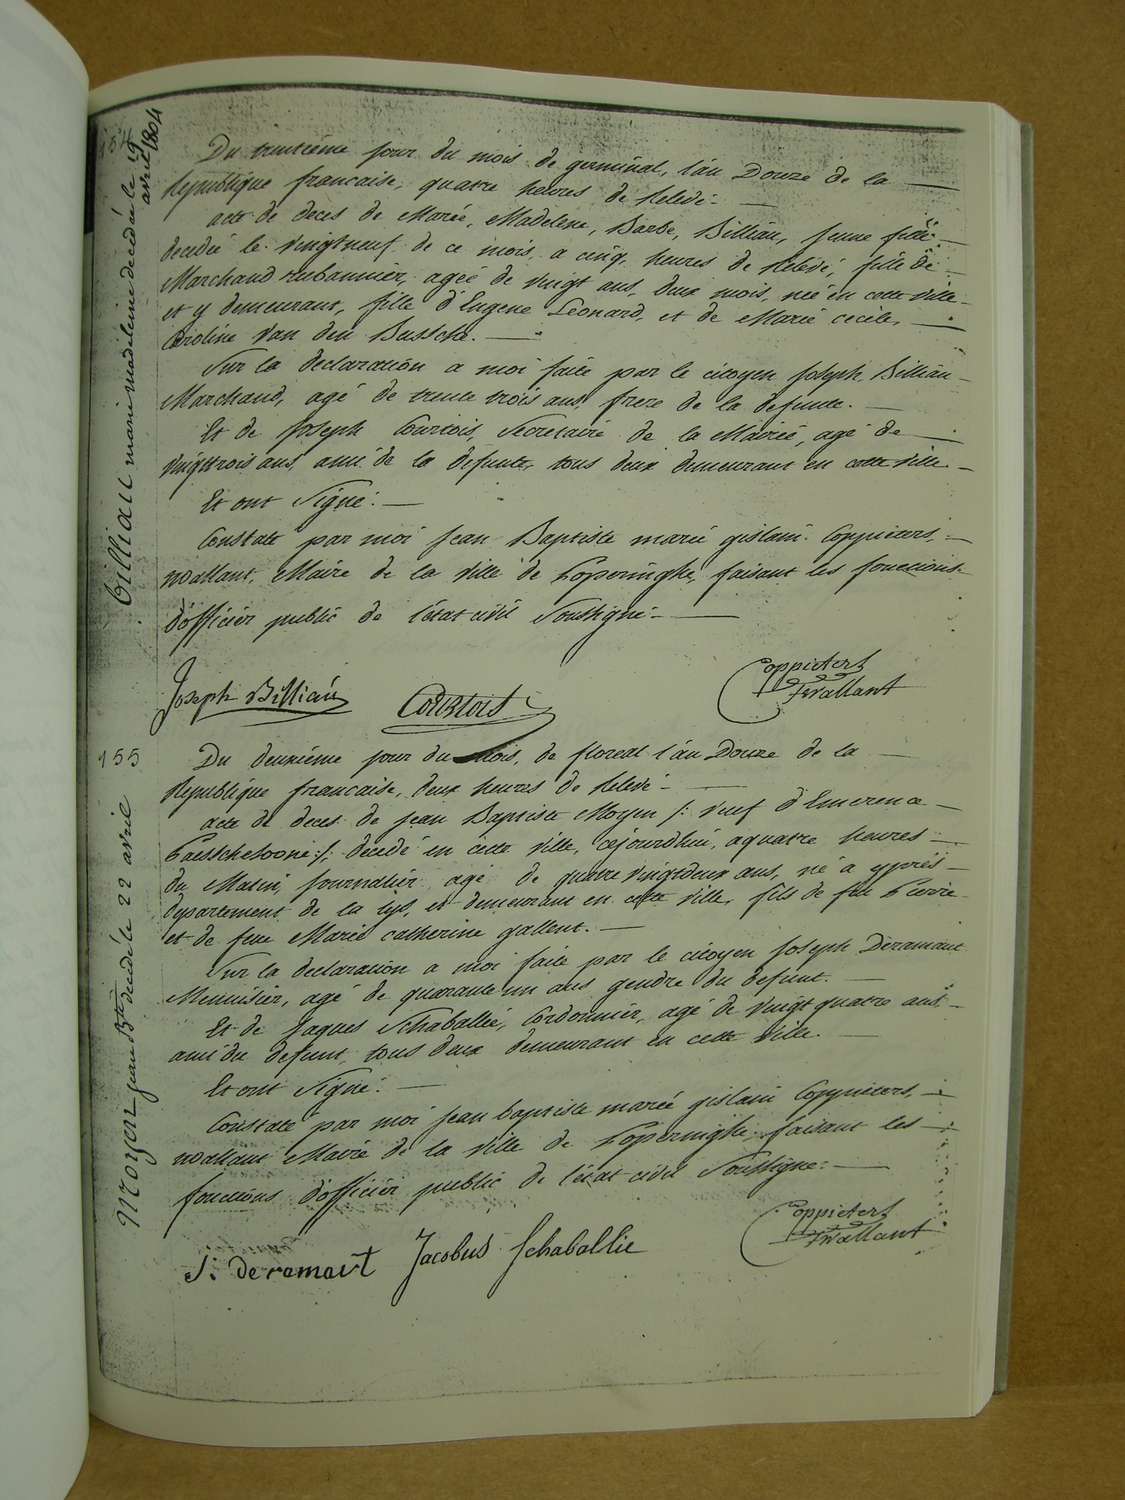 154
Billiau marie madeleine decédée le 19
avril 1804
Du trentiéme jour du mois de germinal, l'an Douze de la
Republique francaise, quatre heures de Relevé.
acte de deces de Marie, Madelene, Barbe, Billiau, jeune fille
decedée le vingtneuf de ce mois, a cinq heures de Relevé, fille de
Marchand Rubannier, agée de vingt ans, deux mois, née en cette ville
et y demeurant, fille d'Eugene Léonard, et de Marie cecile,
Caroline Van den Bussche.
Sur la declaration a moi faite par le citoyen Joseph Billiau
Marchand, agé de trente trois ans, frere de la defunte.
Et de Joseph Courtois, Secretaire de la Mairie, agé de
vingttrois ans, ami de la defunte, tous deux demeurant en cette ville
Et ont Signé:
Constaté par moi Jean Baptiste marie gislain Coppieters,
wallant, Maire de la ville de Poperinghe, faisant les fonctions
d'officier public de l'état civil Soussigné.
Joseph Billiau
Courtois
Coppieters
Twallant
155
Moyen jean Bte decédé le 22 avril
Du deuxiéme jour du Mois, de floreal l'an Douze de la
Republique francaise, deux heures de Relevé.
acte de deces de Jean Baptiste Moyen /: veuf d'Emerence
:/, decédé en cette ville, cejourdhui, aquatre heures
du Matin, journalier agé de quatrevingtdeux ans, né a ypres
departement de la Lys, et demeurant en cette ville, fils de feu Pierre
et de feue Marie catherine gallent.
Sur la declaration a moi faite par le citoyen Joseph Deramaut
Menuisier, agé de quarante un ans gendre du defunt.
Et de Jaques Schaballie, Cordonnier, agé de vingt quatre ans,
ami du defunt, tous deux demeurant en cette ville.
Et ont Signé:
Constaté par moi jean baptiste marie gislain Coppieters,
wallant Maire de la ville de Poperinghe, faisant les
fonctions d'officier public de l'état civil Soussigné:
J. deramavt
Jacobus Schaballie
Coppieters
Twallant